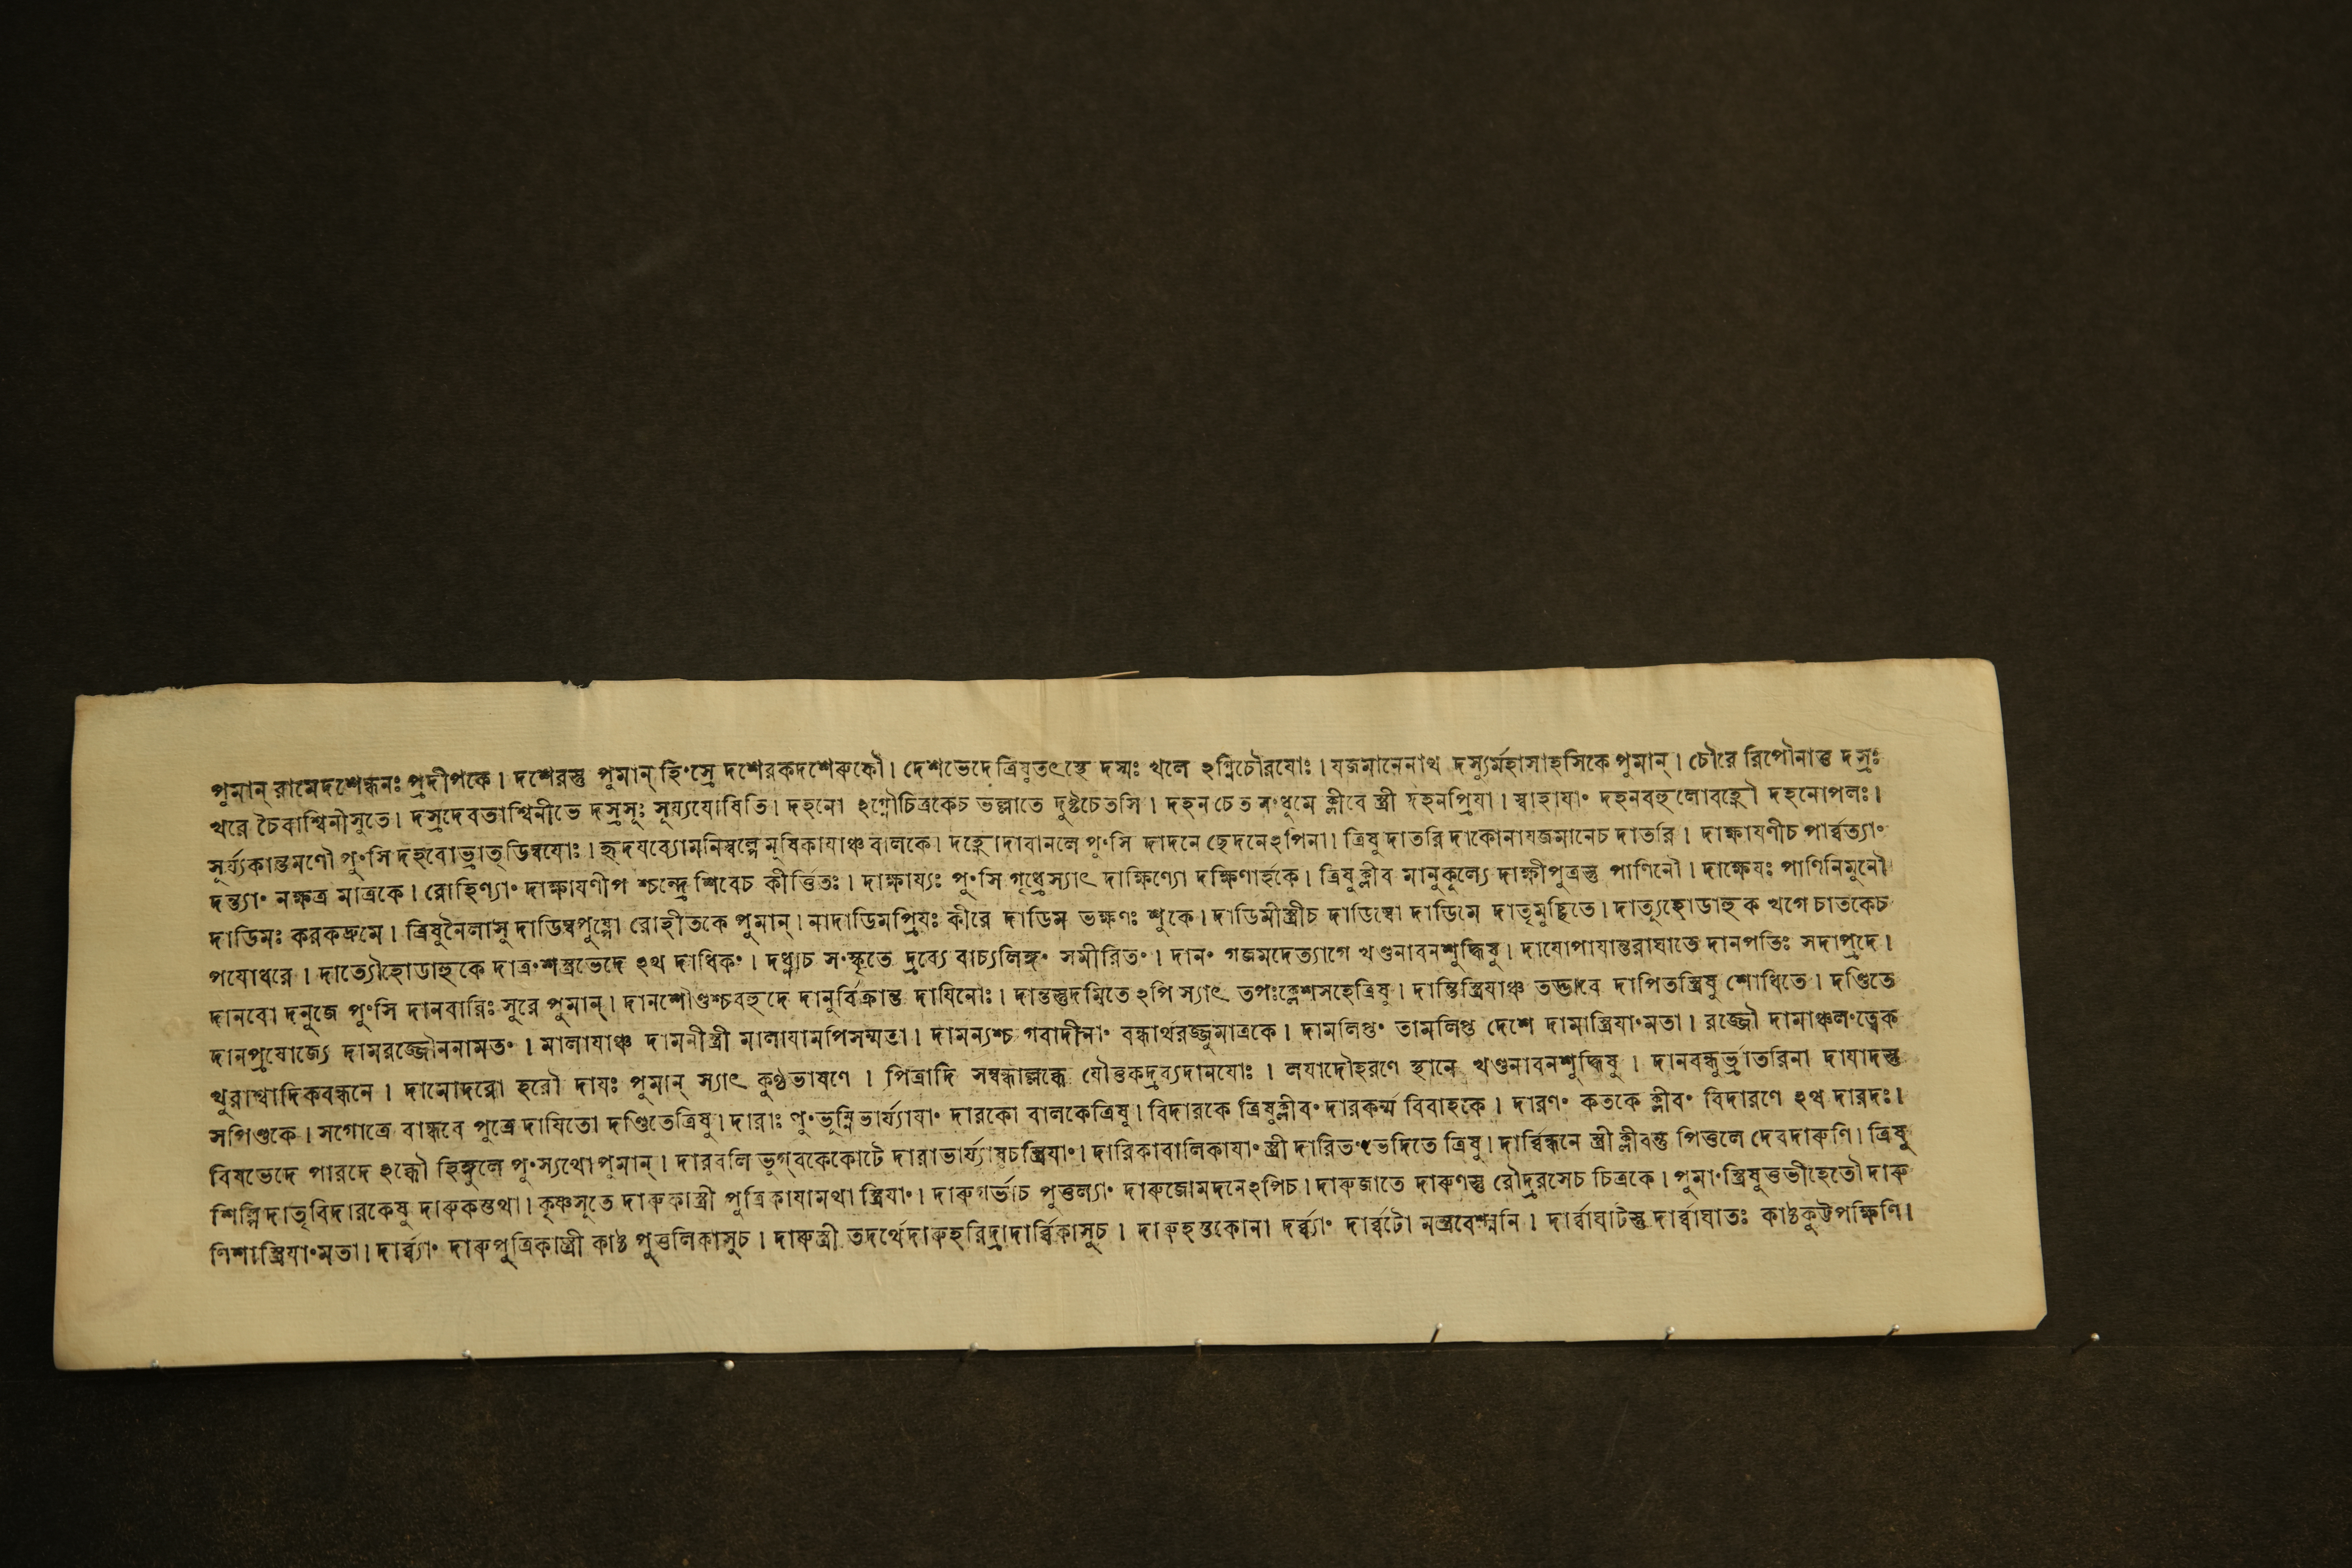 পুমান্ রামেদশেন্ধনঃ প্রদীপকে। দশেরস্তু পুমান্ হিংস্রে দশেরকদশেরুকৌ। দেশভেদেত্রিষুতৎস্থে দস্মঃ খলে ঽগ্নিচৌরযোঃ। যজমানেনাথ দস্যুর্মহাসাহসিকে পুমান্। চৌরে রিপৌনাত্তু দস্রঃ
খরে চৈবাশ্বিনীসুতে। দস্রদেবতাশ্বিনীভে দস্রসূঃ সূর্য্যযোষিতি। দহনো ঽগ্নৌচিত্রকেচ ভল্লাতে দুষ্টচেতসি। দহন চেত নংধূমে ক্লীবে স্ত্রী দহনপ্রিযা। স্বাহাযাং দহনবহুলোবহ্নৌ দহনোপলঃ।
সূর্য্যকান্তমণৌ পুংসি দহরোভ্রাতৃডিম্বযোঃ। হৃদযব্যোমনিস্বল্পে মূষিকাযাঞ্চ বালকে। দহ্রোদাবানলে পুংসি দাদনে ছেদনেঽপিনা। ত্রিষু দাতরি দাকোনাযজমানেচ দাতরি। দাক্ষাযণীচ পার্ব্বত্যাং
দন্ত্যাং নক্ষত্র মাত্রকে। রোহিণ্যাং দাক্ষাযণীপ শ্চন্দ্রে শিবেচ কীর্ত্তিতঃ। দাক্ষায্যঃ পুংসি গৃধ্রেস্যাৎ দাক্ষিণ্যো দক্ষিণার্হকে। ত্রিষুক্লীব মানুকূল্যে দাক্ষীপুত্রস্তু পাণিনৌ। দাক্ষেযঃ পাণিনিমুনৌ
দাডিমঃ করকদ্রুমে। ত্রিষুনৈলাসু দাডিম্বপুষ্পো রোহীতকে পুমান্। নাদাডিমপ্রিযঃ কীরে দাডিম ভক্ষণঃ শুকে। দাডিমীস্ত্রীচ দাডিম্বো দাডিমে দাতৃমুচ্ছিতে। দাত্যূহোডাহু ক খগে চাতকেচ
পযোধরে। দাত্যৌহোডাহুকে দাত্রংশস্ত্রভেদে ঽথ দাধিকং। দধ্নাচ সংস্কৃতে দ্রব্যে বাচ্যলিঙ্গং সমীরিতং। দানং গজমদেত্যাগে খণ্ডনাবনশুদ্ধিষু। দাযোপাযান্তরাঘাতে দানপতিঃ সদাপ্রদে।
দানবো দনুজে পুংসি দানবারিঃ সুরে পুমান্। দানশৌণ্ডশ্চবহুদে দানুর্বিক্রান্ত দাযিনোঃ। দান্তস্তুদমিতে ঽপি স্যাৎ তপঃক্লেশসহেত্রিষু। দান্তিস্ত্রিযাঞ্চ তদ্ভাবে দাপিতস্ত্রিষু শোধিতে। দণ্ডিতে
দানপ্রযোজ্যে দামরজ্জৌননামতং। মালাযাঞ্চ দামনীস্ত্রী মালাযামপিসম্মতা। দামন্যশ্চ গবাদীনাং বন্ধার্থরজ্জুমাত্রকে। দামলিপ্তং তামলিপ্ত দেশে দামাস্ত্রিযাংমতা। রজ্জৌ দামাঞ্চলংত্বেক
খুরাশ্বাদিকবন্ধনে। দামোদরো হরৌ দাযঃ পুমান্ স্যাৎ কুণ্ঠভাষণে। পিত্রাদি সম্বন্ধাল্লব্ধে যৌতকদ্রব্যদানযোঃ। লযাদৌহরণে স্থানে খণ্ডনাবনশুদ্ধিষু। দানবন্ধুর্ভ্রাতরিনা দাযাদস্তু
সপিণ্ডকে। সগোত্রে বান্ধবে পুত্রে দাযিতো দণ্ডিতেত্রিষু। দারাঃ পুংভূম্নিভার্য্যাযাং দারকো বালকেত্রিষু। বিদারকে ত্রিষুক্লীবং দারকর্ম্ম বিবাহকে। দারণং কতকে ক্লীবং বিদারণে ঽথ দারদঃ।
বিষভেদে পারদে ঽব্ধৌ হিঙ্গুলে পুংস্যথোপুমান্। দারবলি ভুগ্বকেকোটে দারাভার্য্যাষচস্ত্রিযাং। দারিকাবালিকাযাং স্ত্রী দারিতংভেদিতে ত্রিষু। দার্ব্বিন্ধনে স্ত্রী ক্লীবন্তু পিত্তলে দেবদারুণি। ত্রিষু
শিল্পি দাতৃবিদারকেষু দারুকস্তথা। কৃষ্ণসূতে দারুকাস্ত্রী পুত্রিকাযামথা স্ত্রিযাং। দারুগর্ভাচ পুত্তল্যাং দারুজোমদনেঽপিচ। দারুজাতে দারুণস্তু রৌদ্ররসেচ চিত্রকে। পুমাংস্ত্রিষুত্তভীহেতৌ দারু
ণিশাস্ত্রিযাংমতা। দার্ব্ব্যাং দারুপুত্রিকাস্ত্রী কাষ্ঠ পুত্তলিকাসুচ। দারুস্ত্রী তদর্থেদারুহরিদ্রাদার্ব্বিকাসুচ। দারুহস্তকোনা দর্ব্ব্যাং দার্ব্বটো মন্ত্রবেশ্মনি। দার্ব্বাঘাটস্তু দার্ব্বাঘাতঃ কাষ্ঠকুট্টপক্ষিণি।